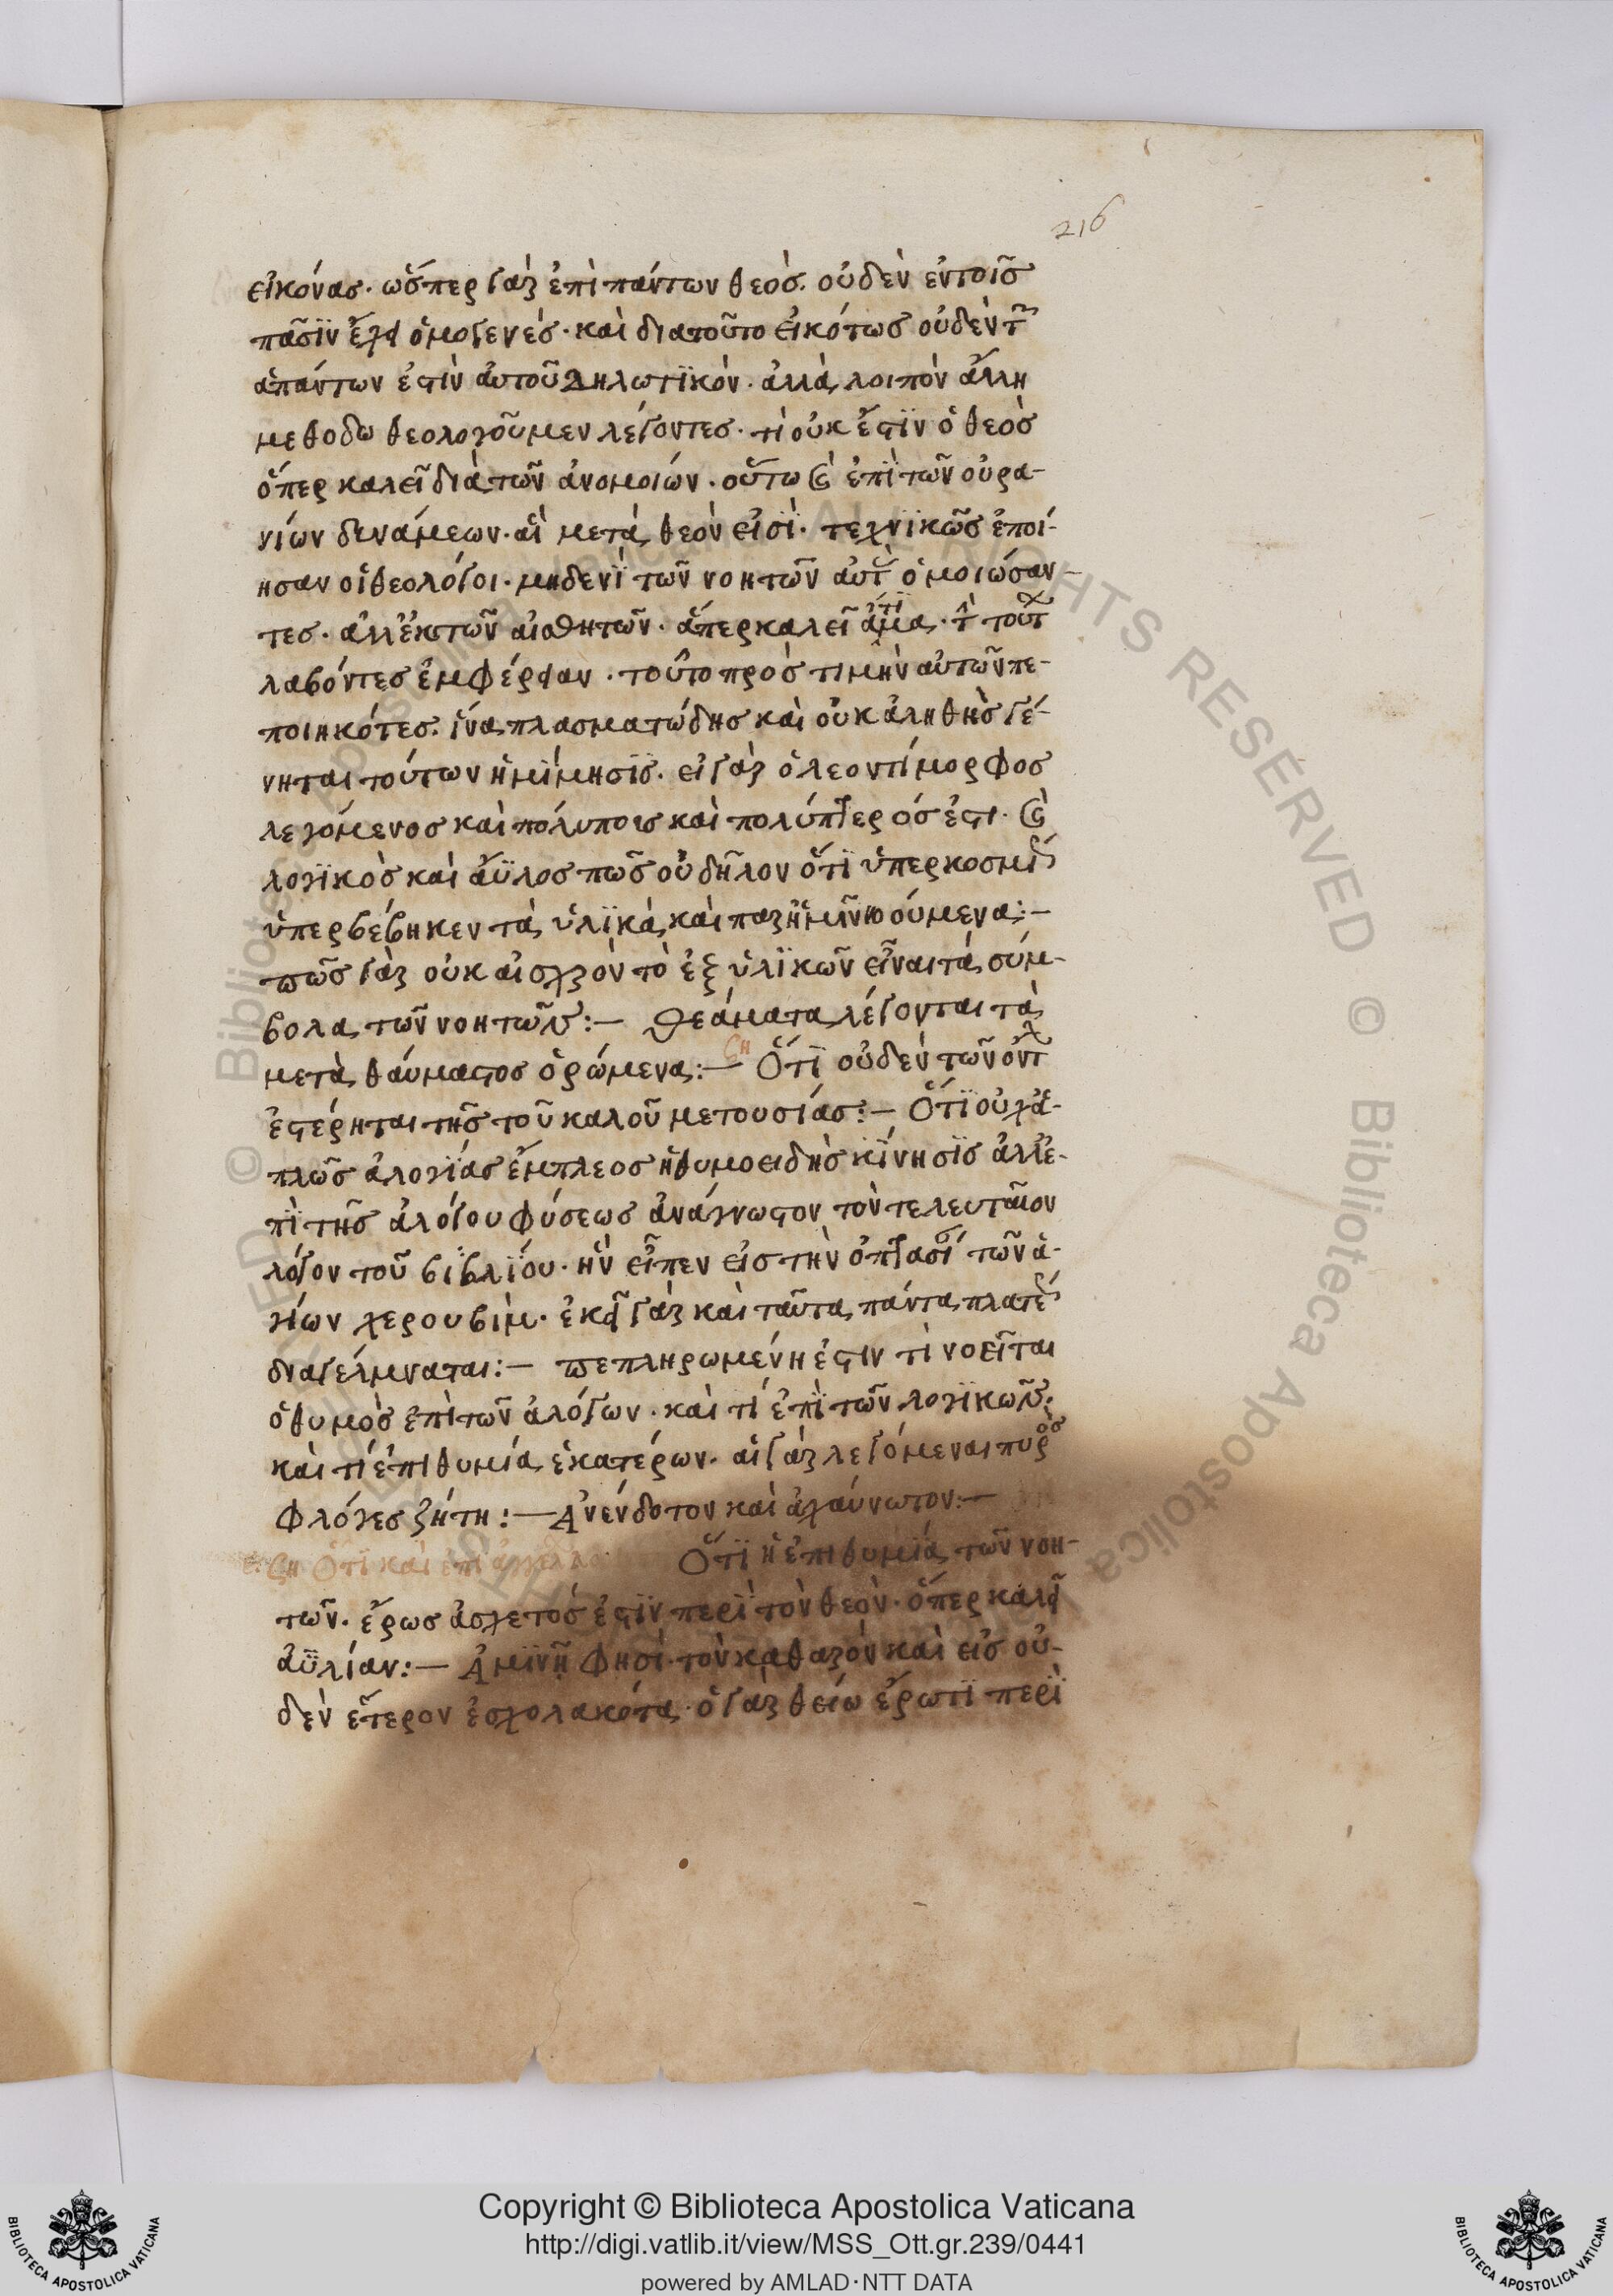 216
εἰκόνας· ὥσπερ γὰρ ἐπὶ πάντων θεὸς· οὐδὲν ἐν τοῖς
πᾶσϊν ἔχει ὁμογενές· καὶ διατοῦτο εἰκότως οὐδὲν τῶν
ἁπάντων ἐστὶν αὐτοῦ δηλωτϊκὸν· ἀλλὰ λοιπὸν ἄλλη
μεθοδω θεολογοῦμεν λέγοντες· τί οὐκ ἔστϊν ὁ θεὸς
ὅπερ καλεῖ διὰ τῶν ἀνομοιών· οὕτω καὶ ἐπῒ τῶν οὐρα-
νίων δυνάμεων· αἳ μετὰ θεὸν εἰσῒ· τεχνϊκῶς ἐποί-
ησαν οἱ θεολόγοι· μηδενῒ τῶν νοητῶν αὐτὰς ὁμοιώσαν-
τες· ἀλλ' ἐκ τῶν αἰσθητῶν· ἅπερ καλεῖ ἄτϊμα· τὴν τούτων
λαβόντες ἐμφέρειαν· τοῦτο πρὸς τιμὴν αὐτῶν πε-
ποιηκότες· ἵνα πλασματώδης καὶ οὐκ ἀληθὴς γέ-
νηται τούτων ἡ μΐμησϊς· εἰ γὰρ ὁ λεοντίμορφος
λεγόμενος καὶ πολύπους καὶ πολύπτερός ἐστι· καὶ
λογϊκὸς καὶ ἄϋλος πῶς οὐ δῆλον ὅτϊ ὑπερκοσμίως
ὑπερβέβηκεν τὰ ὑλϊκὰ καὶ παρ' ἡμῖν νοούμενα:—
πῶς γὰρ οὐκ αἰσχρὸν τὸ ἐξ ὑλϊκῶν εἶναι τὰ σύμ-
βολα τῶν νοητῶν:— Θεάματα λέγονται τὰ
μετὰ θαύματος ὁρώμενα:— ση Ὅτϊ οὐδὲν τῶν ὄντων
ἐστέρηται τῆς τοῦ καλοῦ μετουσίας:— Ὅτϊ οὐχ ἁ-
πλῶς ἀλογΐας ἔμπλεος ἡ θυμοειδὴς κΐνησϊς ἀλλ' ἐ-
πῒ τῆς ἀλόγου φύσεως ἀνάγνωστον τὸν τελευταῖον
λόγον τοῦ βιβλΐου· ἣν εἶπεν εἰς τὴν ὀπτασίαν τῶν ἁ-
γίων χερουβὶμ· ἐκεῖ γὰρ καὶ ταῦτα πάντα πλατέως
διαγέγυμναται:— πεπληρωμένη ἐστιν τὶ νοεῖται
ὁ θυμὸς ἐπὶ τῶν ἀλόγων· καὶ τί ἐπῒ τῶν λογϊκῶν·
καὶ τί ἐπιθυμία ἑκατέρων· αἱ γὰρ λεγόμεναι πυρὸς
φλόγες ζήτη:— Ἀνένδοτον καὶ ἀχαύνωτον:—
ση Ὅτϊ καὶ ἐπὶ ἀγγέλλων Ὅτϊ ἡ ἐπιθυμία τῶν νοη-
τῶν· ἔρως ἄσχετός ἐστϊν περῒ τὸν θεὸν· ὅπερ καλεῖ
ἀϋλίαν:— Ἀμϊνῆ φησὶ· τὸν καθαρὸν καὶ εἰς οὐ-
δὲν ἕτερον ἐσχολακότα· ὁ γὰρ θείω ἔρωτϊ περῒ
Copyright © Biblioteca Apostolica Vaticana
http://digi.vatlib.it/view/MSS_Ott.gr.239/0441
powered by AMLAD·NTT DATA